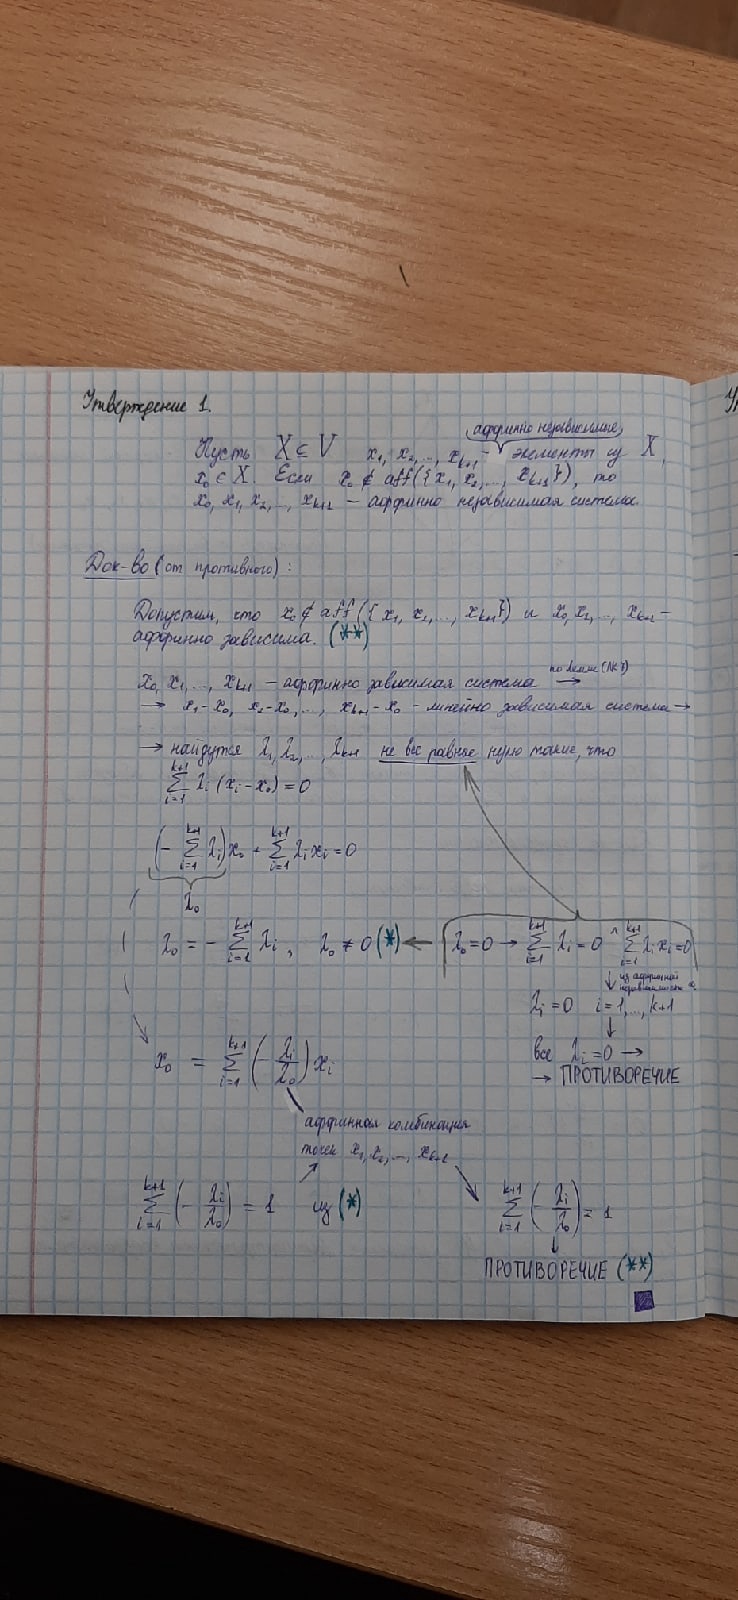 Утверждение 1.
аффинно независимые
Пусть X ⊆ V x₁, x₂, ..., xₖ₊₁ - элементы из X,
x₀ ∈ X. Если x₀ ∉ aff({x₁, x₂, ..., xₖ₊₁}), то
x₀, x₁, x₂, ..., xₖ₊₁ — аффинно независимая система.
Док-во (от противного):
Допустим, что x₀ ∉ aff({x₁, x₂, ..., xₖ₊₁}) и x₀, x₁, ..., xₖ₊₁ —
аффинно зависима. (**)
x₀, x₁, ..., xₖ₊₁ — аффинно зависимая система →
→ x₁-x₀, x₂-x₀, ..., xₖ₊₁-x₀ - линейно зависимая система →
→ найдутся λ₁, λ₂, ..., λₖ₊₁ не все равные нулю такие, что
∑ᵢ₌₁ᵏ⁺¹ λᵢ (xᵢ - x₀) = 0
(- ∑ᵢ₌₁ᵏ⁺¹ λᵢ) x₀ + ∑ᵢ₌₁ᵏ⁺¹ λᵢ xᵢ = 0
λ₀
λ₀ = - ∑ᵢ₌₁ᵏ⁺¹ λᵢ, λ₀ ≠ 0 (*) ← λ₀ = 0 → ∑ᵢ₌₁ᵏ⁺¹ λᵢ = 0 ∧ ∑ᵢ₌₁ᵏ⁺¹ λᵢ xᵢ = 0
↓ из аффинной
независимости
λᵢ = 0 i = 1, ..., k+1
↓
все λᵢ = 0 →
→ ПРОТИВОРЕЧИЕ
x₀ = ∑ᵢ₌₁ᵏ⁺¹ (- λᵢ/λ₀) xᵢ
аффинная комбинация
точек x₁, x₂, ..., xₖ₊₁
∑ᵢ₌₁ᵏ⁺¹ (- λᵢ/λ₀) = 1 из (*)
∑ᵢ₌₁ᵏ⁺¹ (- λᵢ/λ₀) = 1
↓
ПРОТИВОРЕЧИЕ (**)